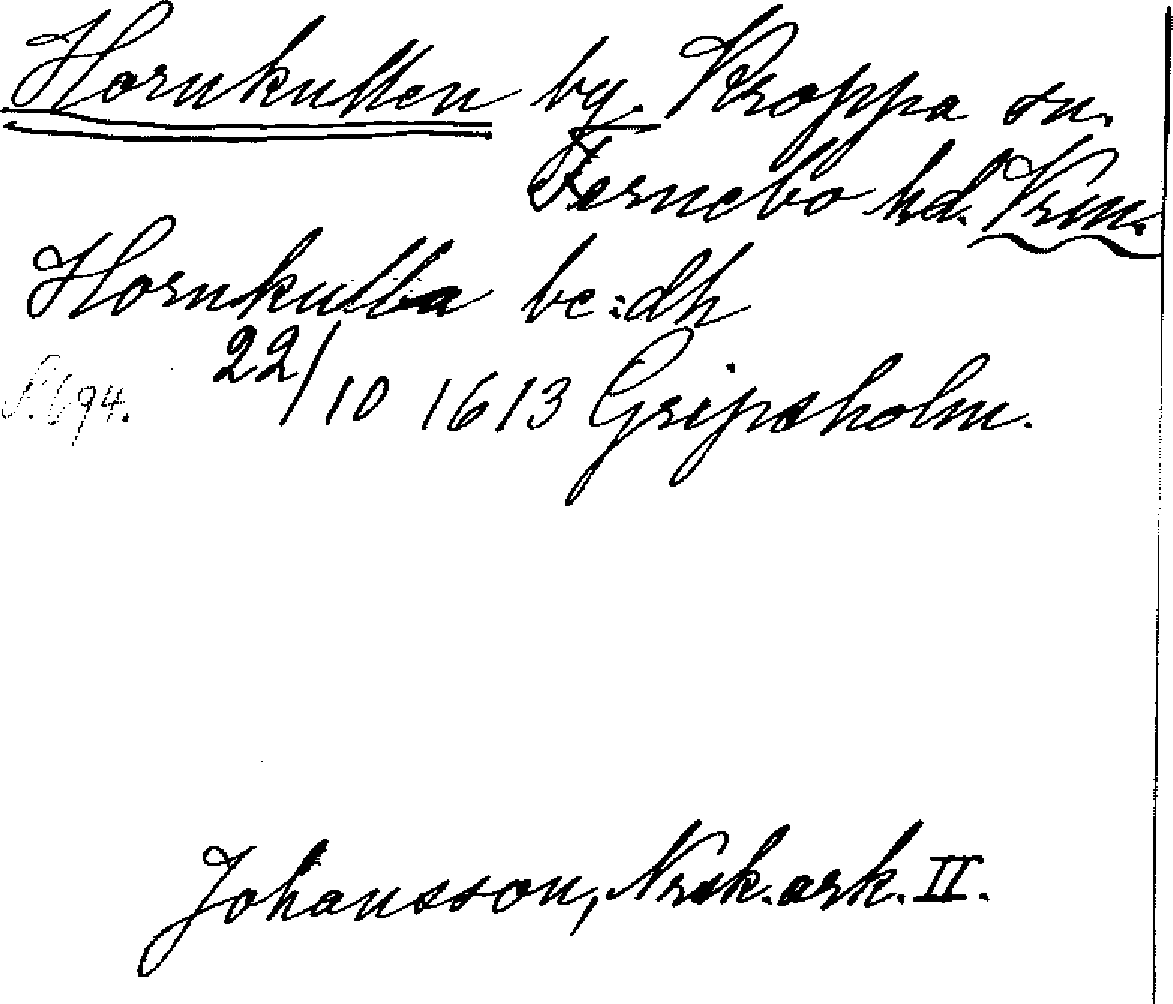 Hornkullen by. Kroppa sn.
Fernebo hd. Vrm.
Hornkulla be:dh
S. 694. 22/10 1613 Gripsholm.
Johansson, Norsk. ark. II.